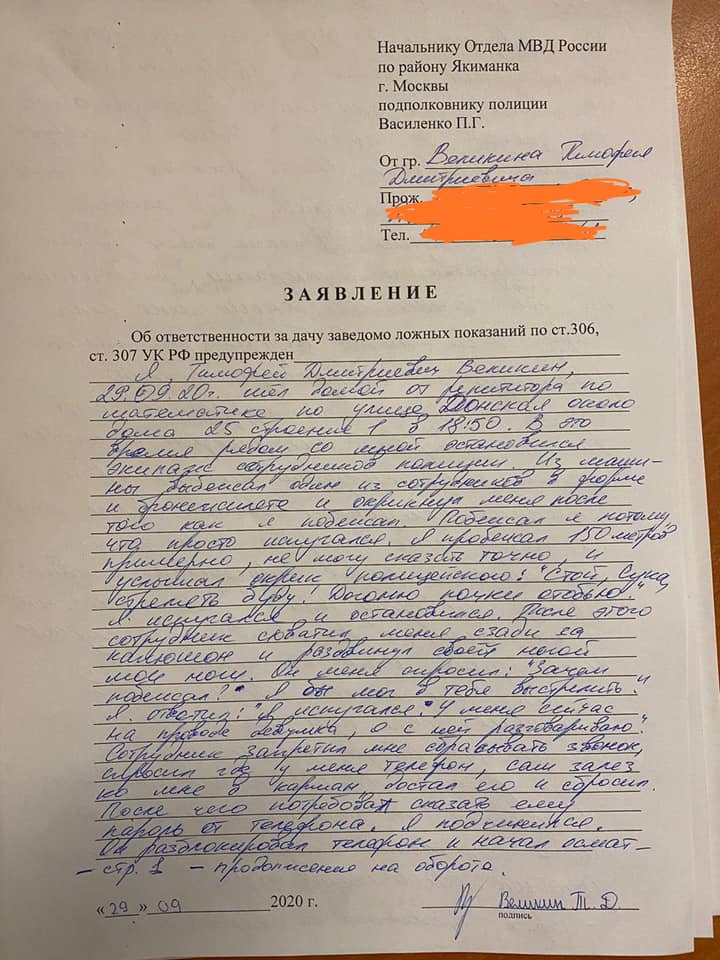 Начальнику Отдела МВД России
по району Якиманка
г. Москвы
подполковнику полиции
Василенко П.Г.
От гр. Великина Тимофея
Дмитриевича
Прож.
Тел.
ЗАЯВЛЕНИЕ
Об ответственности за дачу заведомо ложных показаний по ст.306,
ст. 307 УК РФ предупрежден
Я, Тимофей Дмитриевич Великин,
29.09.20г. шёл домой от репетитора по
математике по улице Донская около
дома 25 строение 1 в 18:50. В это
время рядом со мной остановился
экипаж сотрудников полиции. Из маши-
ны выбежал один из сотрудников в форме
и бронежилете и окрикнул меня после
того как я побежал. Побежал я потому,
что просто испугался. Я пробежал 150 метров
примерно, не могу сказать точно, и
услышал окрик полицейского: "Стой, Сука,
стрелять буду! Догоню почки отобью"
Я испугался и остановился. После этого
сотрудник схватил меня сзади за
капюшон и раздвинул своей ногой
мои ноги. Он меня спросил: "Зачем
побежал?" "Я бы мог в тебя выстрелить."
Я ответил: "Я испугался. У меня сейчас
на проводе девушка, я с ней разговариваю".
Сотрудник запретил мне сбрасывать звонок,
спросил где у меня телефон, сам залез
ко мне в карман, достал его и сбросил.
После чего потребовал сказать ему
пароль от телефона. Я подчинился.
Он разблокировал телефон и начал осмат-
- стр. 1 - продолжение на обороте.
«29» 09 2020 г.
Великин Т. Д.
подпись